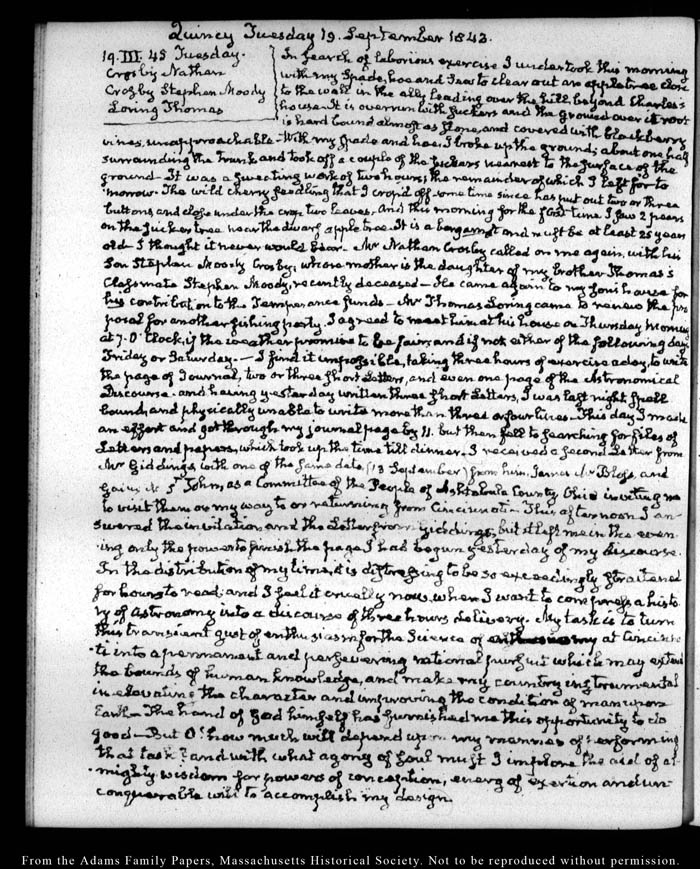 Quincy Tuesday 19. September 1843.
19. III. 45 Tuesday.
Crosby Nathan
Crosby Stephen Moody
Loring Thomas
In search of laborious exercise I undertook this morning
with my Spade, hoe and to clear out an appletree close
to the wall in the ally, leading over the hill, beyond Charles's
house. It is overrun with suckers and the ground over its root
is hard bound almost as stone, and covered with blackberry
vines, unapproachable. With my spade and hoe, I broke up the ground, about one half
surrounding the trunk and took off a couple of the suckers nearest to the surface of the
ground. It was a sweating work of two hours; the remainder of which I left for to
morrow. The wild cherry seedling that I crop'd off some time since has put out two or three
buttons, and close under the crop two leaves. And this morning for the first time I saw 2 pears
on the sucker tree near the dwarf apple tree. It is a bergamot and must be at least 25 years
old. I thought it never would bear. Mr Nathan Crosby called on me again, with his
Son Stephen Moody Crosby, whose mother is the daughter of my brother Thomas's
Classmate Stephen Moody, recently deceased. He came again to my house for
his contribution to the Temperance funds. Mr Thomas Loring came to renew the pro
posal for another fishing party. I agreed to meet him at his house on Thursday Morning
at 7. O'Clock, if the weather promise to be fair, and if not either of the following days
Friday or Saturday. — I find it impossible, taking three hours of exercise a day, to write
the page of Journal, two or three short Letters, and even one page of the Astronomical
Discourse. and having yesterday written three short Letters, I was last night spell
bound, and physically unable to write more than three or four lines. This day I made
an effort and got through my journal page by 11. but then fell to searching for files of
Letters and papers, which took up the time till dinner. I received a second Letter from
Mr Giddings, with one of the same date (13 September) from him, James Mr Bloss, and
Gaius St John, as a Committee of the People of Ashtabula County Ohio inviting me
to visit them on my way to or returning from Cincinnati. This afternoon I an
swered the invitation and the Letter from Giddings, but it left me in the even
ing only the power to finish the page I had begun yesterday of my discourse.
In the distribution of my time, it is distressing to be so exceedingly straitened
for hours to read; and I feel it cruelly now, when I want to compress a histo
ry of Astronomy into a discourse of three hours delivery. My task is to turn
this transient gust of enthusiasm for the Science of astronomy at Cincinna
ti into a permanent and persevering national pursuit which may extend
the bounds of human knowledge, and make my country instrumental
in elevating the character and improving the condition of man upon
Earth. The hand of God himself has furnished me this opportunity to do
good. But O! how much will depend upon my manner of performing
that task? and with what agony of Soul must I implore the aid of al
mighty wisdom for powers of conception, energy of exertion and un
conquerable will to accomplish my design.
From the Adams Family Papers, Massachusetts Historical Society. Not to be reproduced without permission.